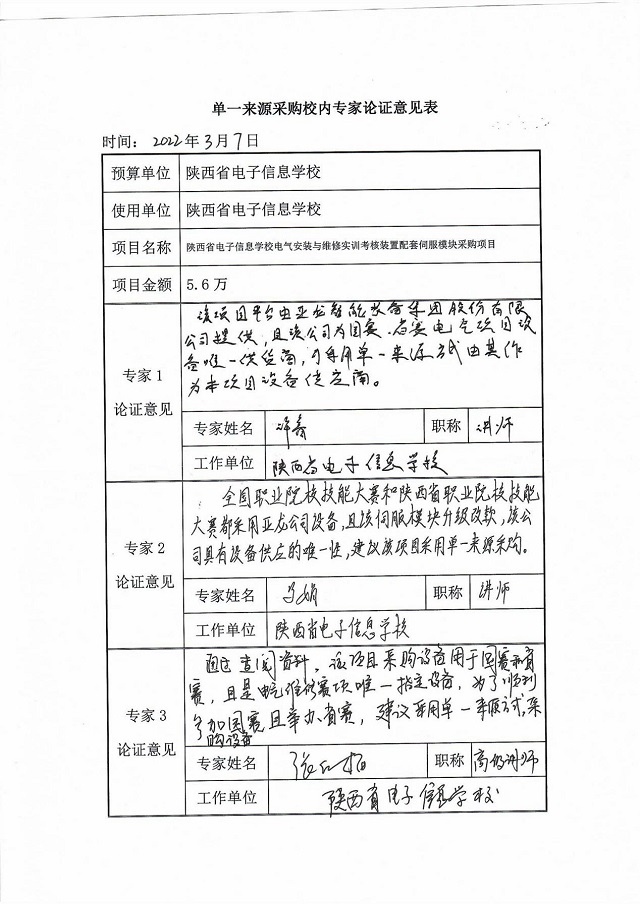 单一来源采购校内专家论证意见表
时间：2022年3月7日
预算单位 陕西省电子信息学校
使用单位 陕西省电子信息学校
项目名称 陕西省电子信息学校电气安装与维修实训考核装置配套伺服模块采购项目
项目金额 5.6万
专家1
论证意见
该项目平台由亚龙智能装备集团股份有限
公司提供，且该公司为国赛、省赛电气项目设
备唯一供货商，可采用单一来源方式由其作
为本项目设备供应商。
专家姓名 职称 讲师
工作单位 陕西省电子信息学校
专家2
论证意见
全国职业院校技能大赛和陕西省职业院校技能
大赛都采用亚龙公司设备，且该伺服模块升级改款，该公
司具有设备供应的唯一性，建议该项目采用单一来源采购。
专家姓名 马娟 职称 讲师
工作单位 陕西省电子信息学校
专家3
论证意见
通过查阅资料，该项目采购设备用于国赛和省
赛，且是电气维修赛项唯一指定设备，为了顺利
参加国赛且举办省赛，建议采用单一来源方式，采
购设备
专家姓名 职称 高级讲师
工作单位 陕西省电子信息学校